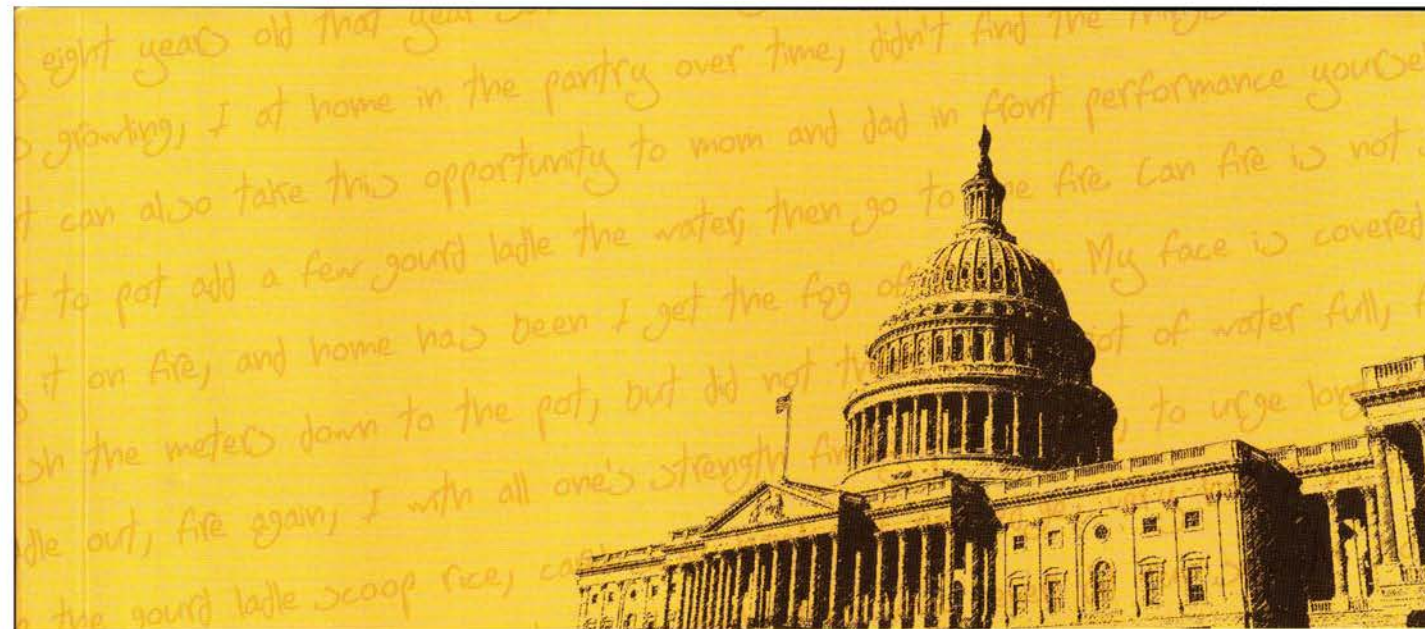 eight years old that year
growling, I at home in the pantry over time, didn't find the things
can also take this opportunity to mom and dad in front performance yourse
to pot add a few gourd ladle the water, then go to the fire. Can fire is not
it on fire, and home has been I get the fog of My face is covered
the meters down to the pot, but did not of water full,
out, fire again, I with all one's strength to urge long
the gourd ladle scoop rice,